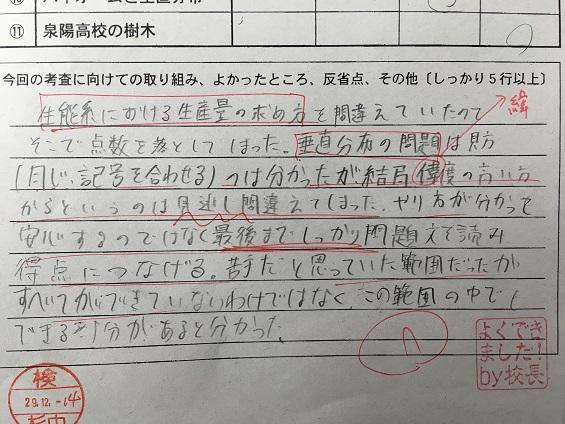 ⑪ 泉陽高校の樹木
今回の考査に向けての取り組み、よかったところ、反省点、その他〔しっかり5行以上〕
生態系における生産量の求め方を間違えていたので
緯
そこで点数を落としてしまった。垂直分布の問題は片方
(同じ記号を合わせる)つは分かったが、結局偉度の高い方
からというのは見逃し間違えてしまった。やり方が分かって
安心するのではなく最後までしっかり問題文を読み
得点につなげる。苦手だと思っていた範囲だったが
すべてができていないわけではなく、この範囲の中で
できる部分があると分かった。
よくでき
ました!
by校長
検
29.12.-14